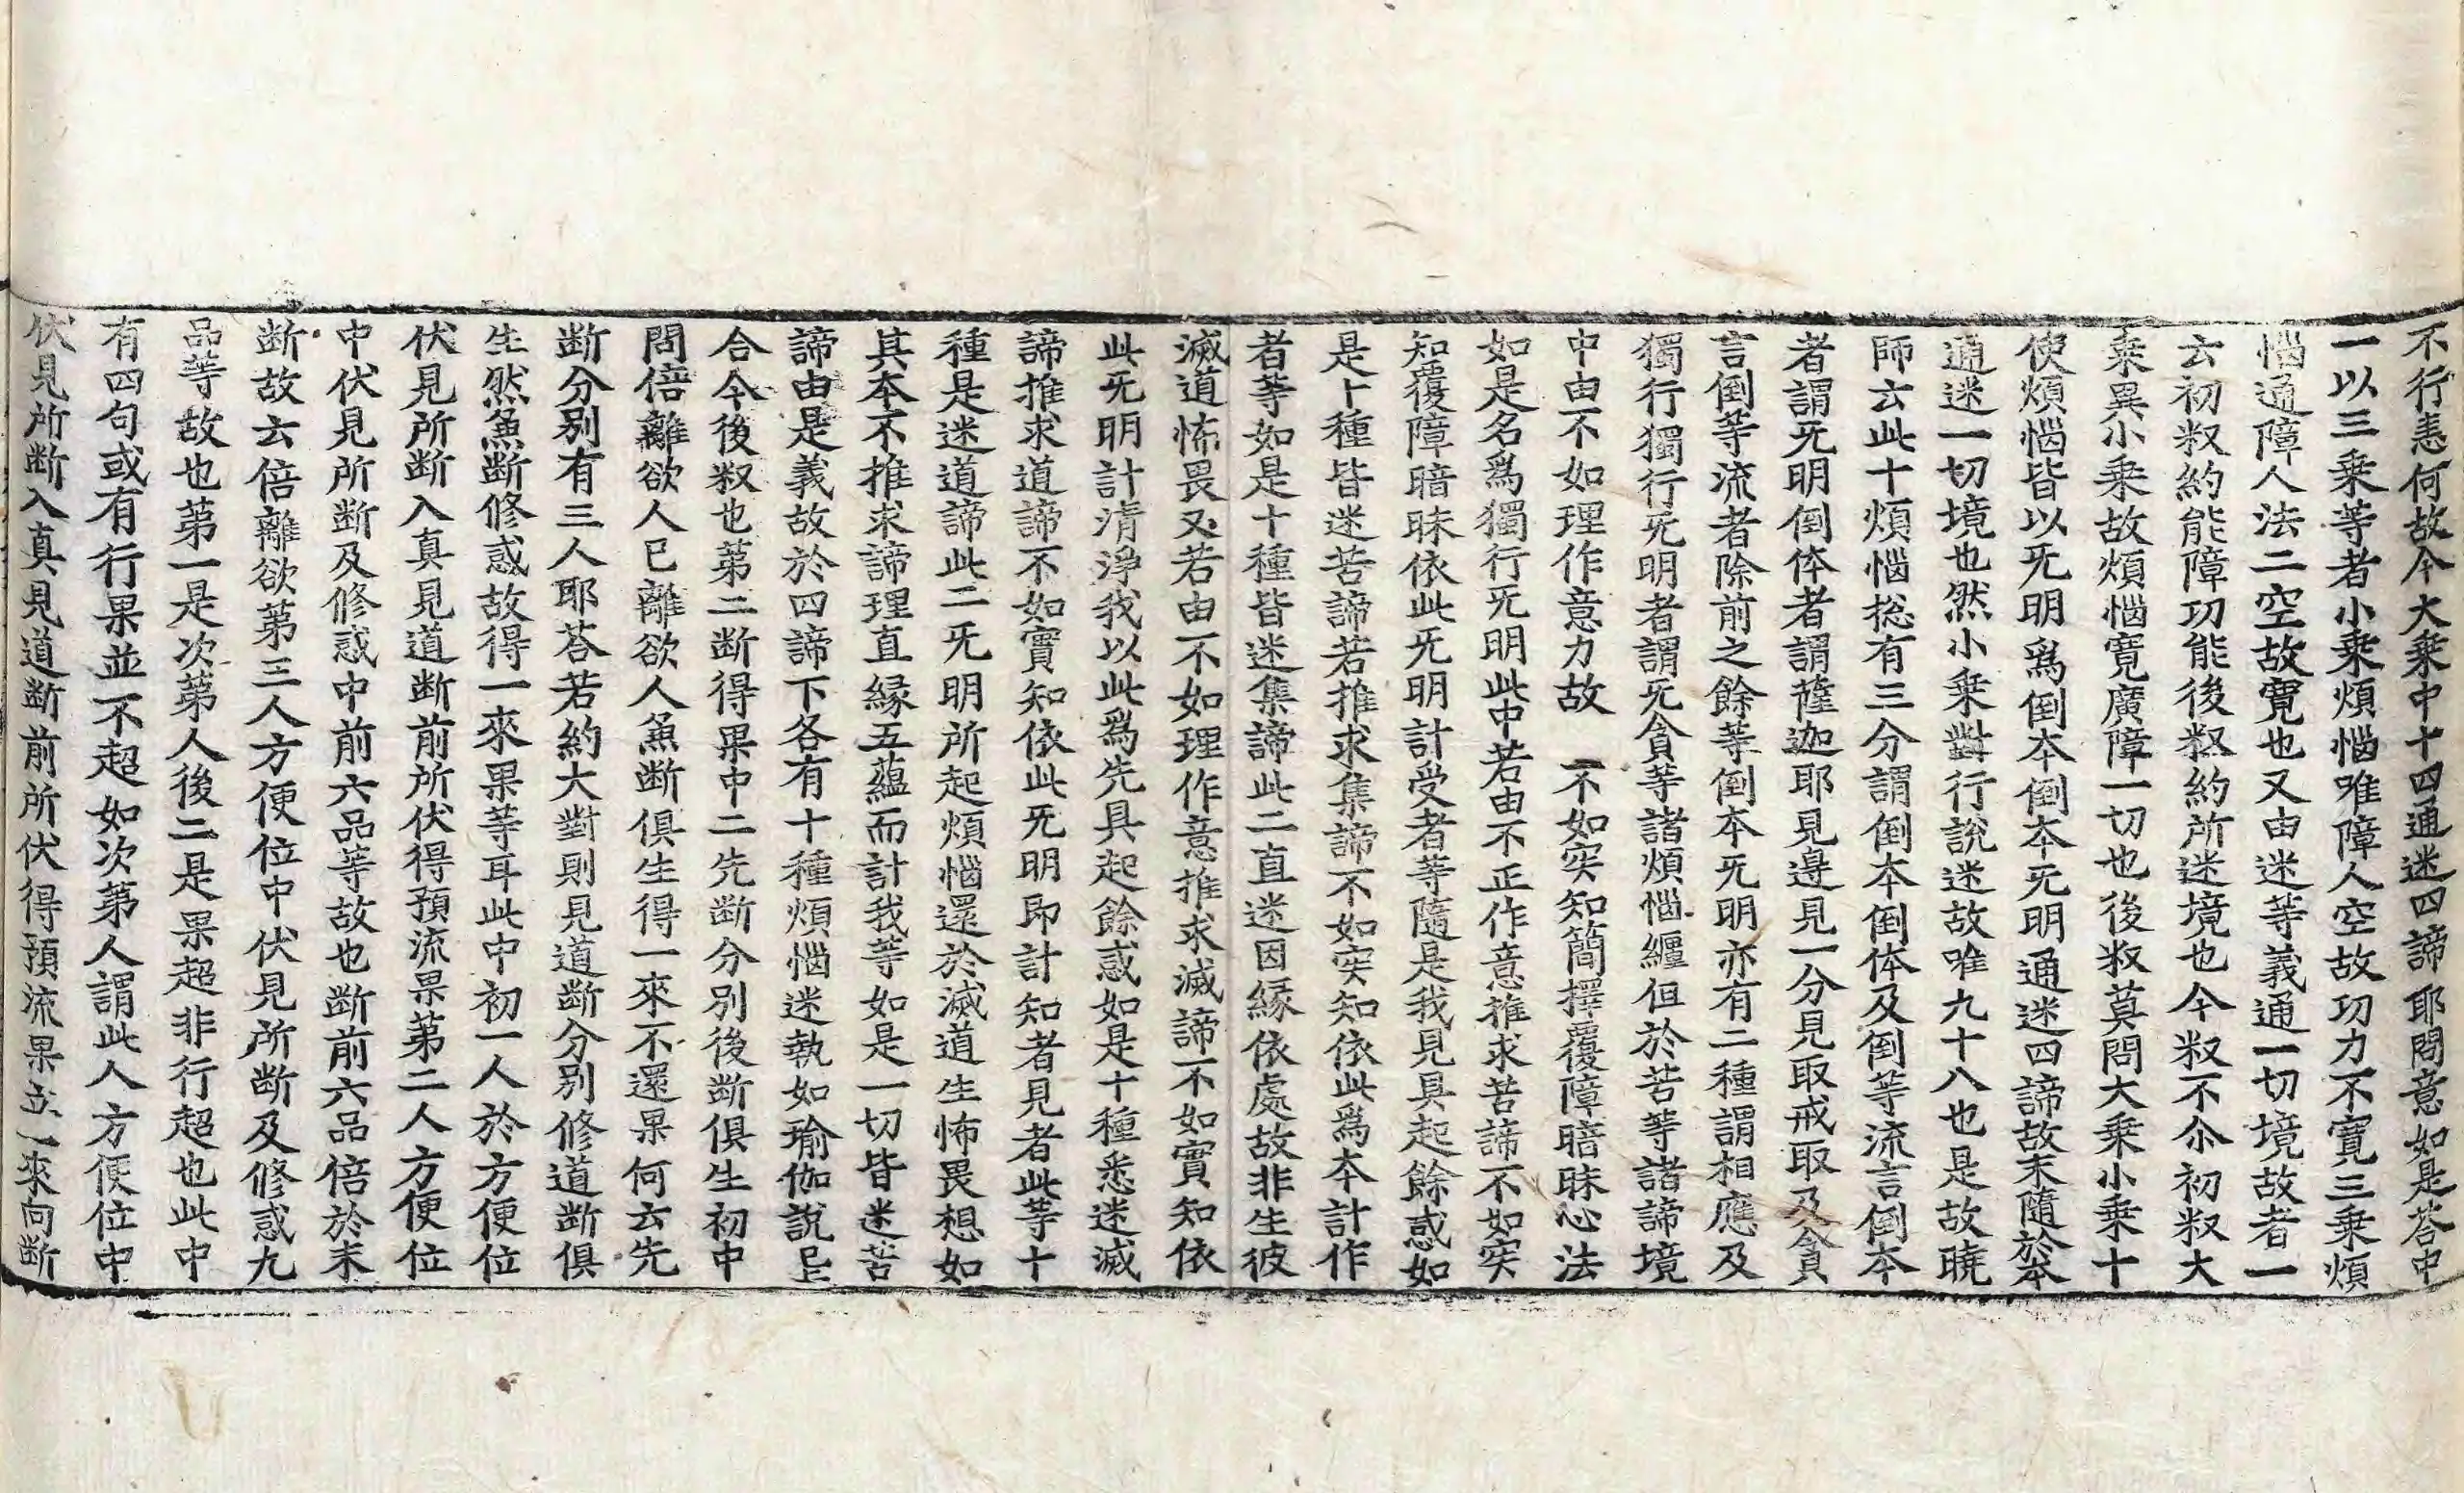 不行恚何故今大乗中十四通迷四諦耶問意如是荅中
一以三乗等者小乗煩惱唯障人空故功力不寛三乗煩
惱通障人法二空故寛也又由迷等義通一切境故者一
云初釈約能障功能後釈約所迷境也今釈不尒初釈大
乗異小乗故煩惱寛廣障一切也後釈莫問大乗小乗十
使煩惱皆以旡明爲倒本倒本旡明通迷四諦故末隨於本
通迷一切境也然小乗對行說迷故唯九十八也是故曉
師云此十煩惱捴有三分謂倒本倒体及倒等流言倒本
者謂旡明倒体者謂薩迦耶見邊見一分見取戒取及貪
言倒等流者除前之餘等倒本旡明亦有二種謂相應及
獨行獨行旡明者謂旡貪等諸煩惱纏但於苦等諸諦境
中由不如理作意力故 一不如実知簡擇覆障暗昧心法
如是名爲獨行旡明此中若由不正作意推求苦諦不如実
知覆障暗昧依此旡明計受者等隨是我見具起餘惑如
是十種皆迷苦諦若推求集諦不如実知依此爲本計作
者等如是十種皆迷集諦此二直迷因縁依處故非生彼
滅道怖畏又若由不如理作意推求滅諦不如實知依
此旡明計清淨我以此爲先具起餘惑如是十種悉迷滅
諦推求道諦不如實知依此旡明即計知者見者此等十
種是迷道諦此二旡明所起煩惱還於滅道生怖畏想如
其本不推求諦理直縁五蘊而計我等如是一切皆迷苦
諦由是義故於四諦下各有十種煩惱迷執如瑜伽說㠯上
合今後釈也第二断得果中二先断分別後断俱生初中
問倍離欲人已離欲人兼断俱生得一來不還果何云先
断分別有三人耶荅若約大對則見道断分別修道断俱
生然兼断修惑故得一來果等耳此中初一人於方便位
伏見所断入真見道断前所伏得預流果第二人方便位
中伏見所断及修惑中前六品等故也断前六品倍於末
断故云倍離欲第三人方便位中伏見所断及修惑九
品等故也第一是次第人後二是果超非行超也此中
有四句或有行果並不超如次第人謂此人方便位中
伏見所断入真見道断前所伏得預流果立一來向断